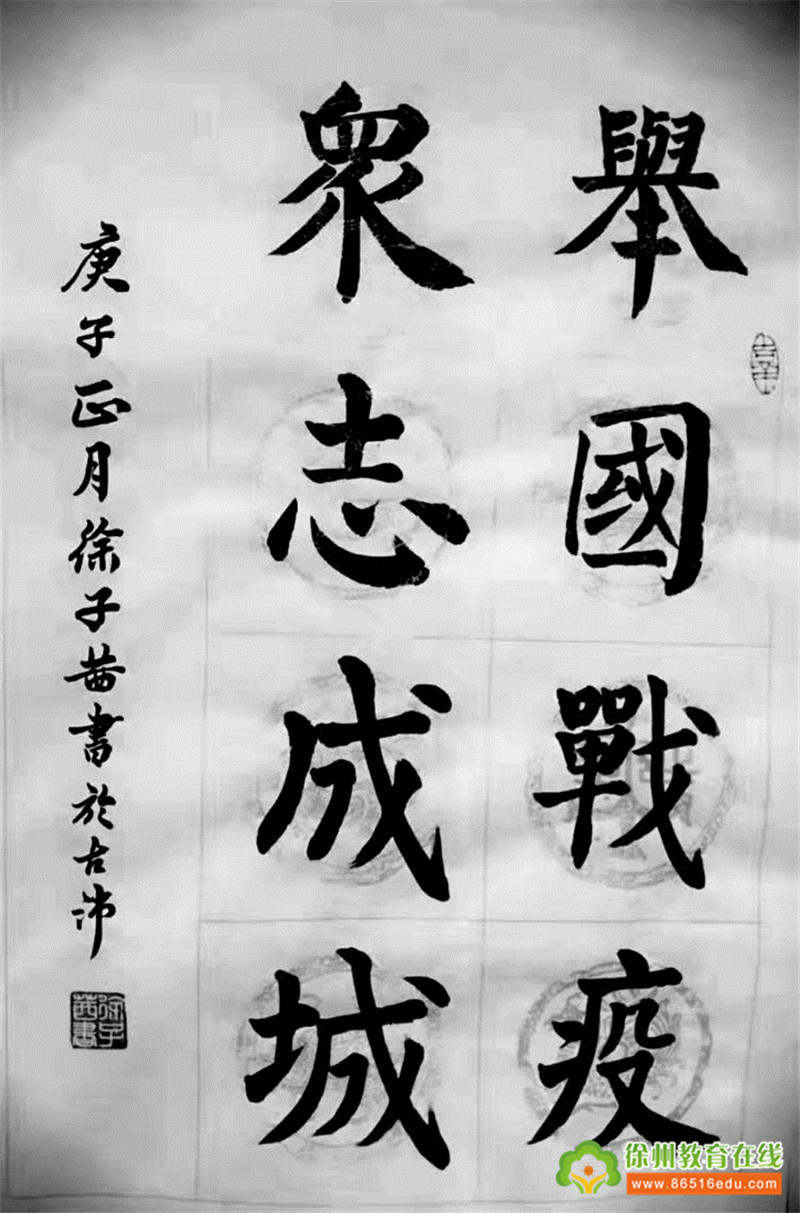 舉國戰疫
眾志成城
庚子正月徐子茜書於古沛
徐子茜書
徐州教育在线
www.86516edu.com